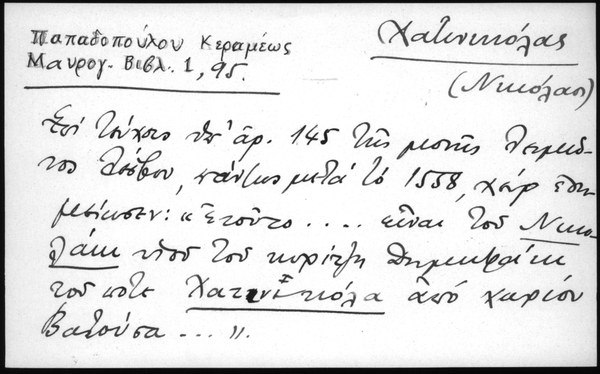 Παπαδοπούλου Κεραμέως
Μαυρογ. Βιβλ. 1, 95.
Χατζινικόλας
(Νικόλαος)
Ἐπὶ τεύχους ὑπ' ἀρ. 145 τῆς μονῆς Λειμῶ-
νος Λέσβου, πάντως μετὰ τὸ 1558, χεὶρ ἐση-
μείωσεν: «Ἐτοῦτο .... εἶναι τοῦ Νικο-
λάκη υἱοῦ τοῦ κυρίτζη Δημητράκη
τοῦ ποτὲ Χατζηνικόλα ἀπὸ χωρίον
Βατοῦσα ... ».